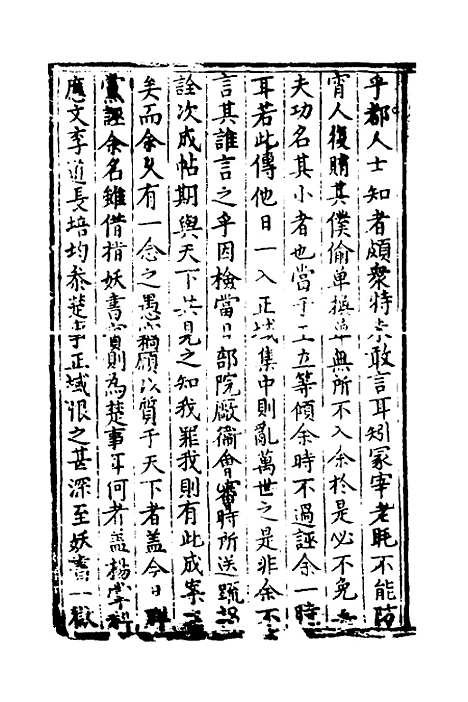 乎都人士知者頗衆特未敢言耳矧冢宰老眊不能防
宵人復賄其僕偷单換单無所不入余於是必不免
夫功名其小者也當于王立等傾余時不過誣余一時
耳若此傳他日一入正域集中則亂萬世之是非余不
言其誰言之乎因檢當日部院廠衞會審時所送疏揭
詮次成帖期與天下共見之知我罪我則有此成案
矣而余又有一念之愚竊願以質于天下者盖今日
黨誣余名雖借指妖書實則為楚事耳何者盖楊掌科
應文李道長培均叅楚事正域恨之甚深至妖書一獄